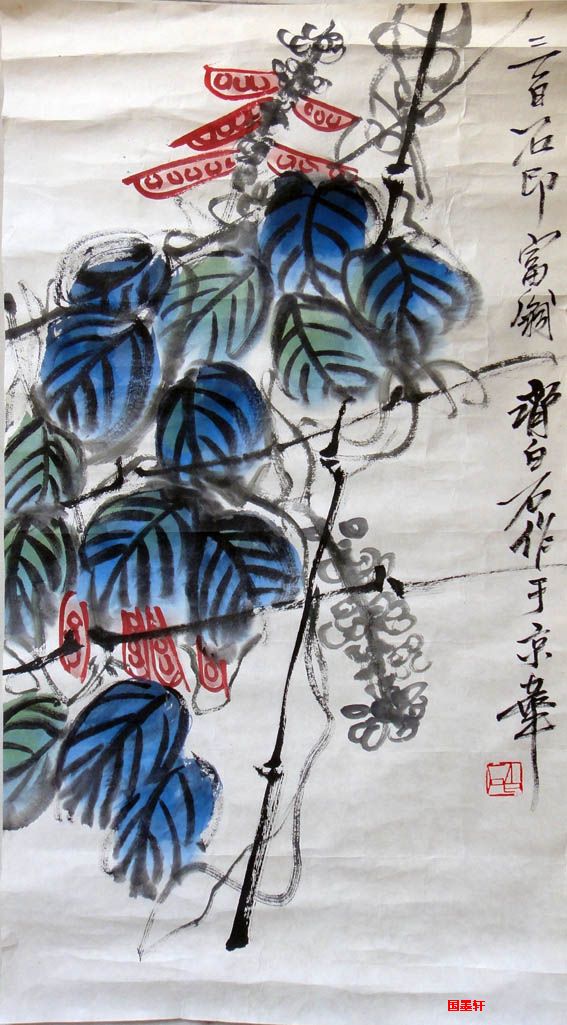 三百石印富翁 齊白石作于京華
国墨轩